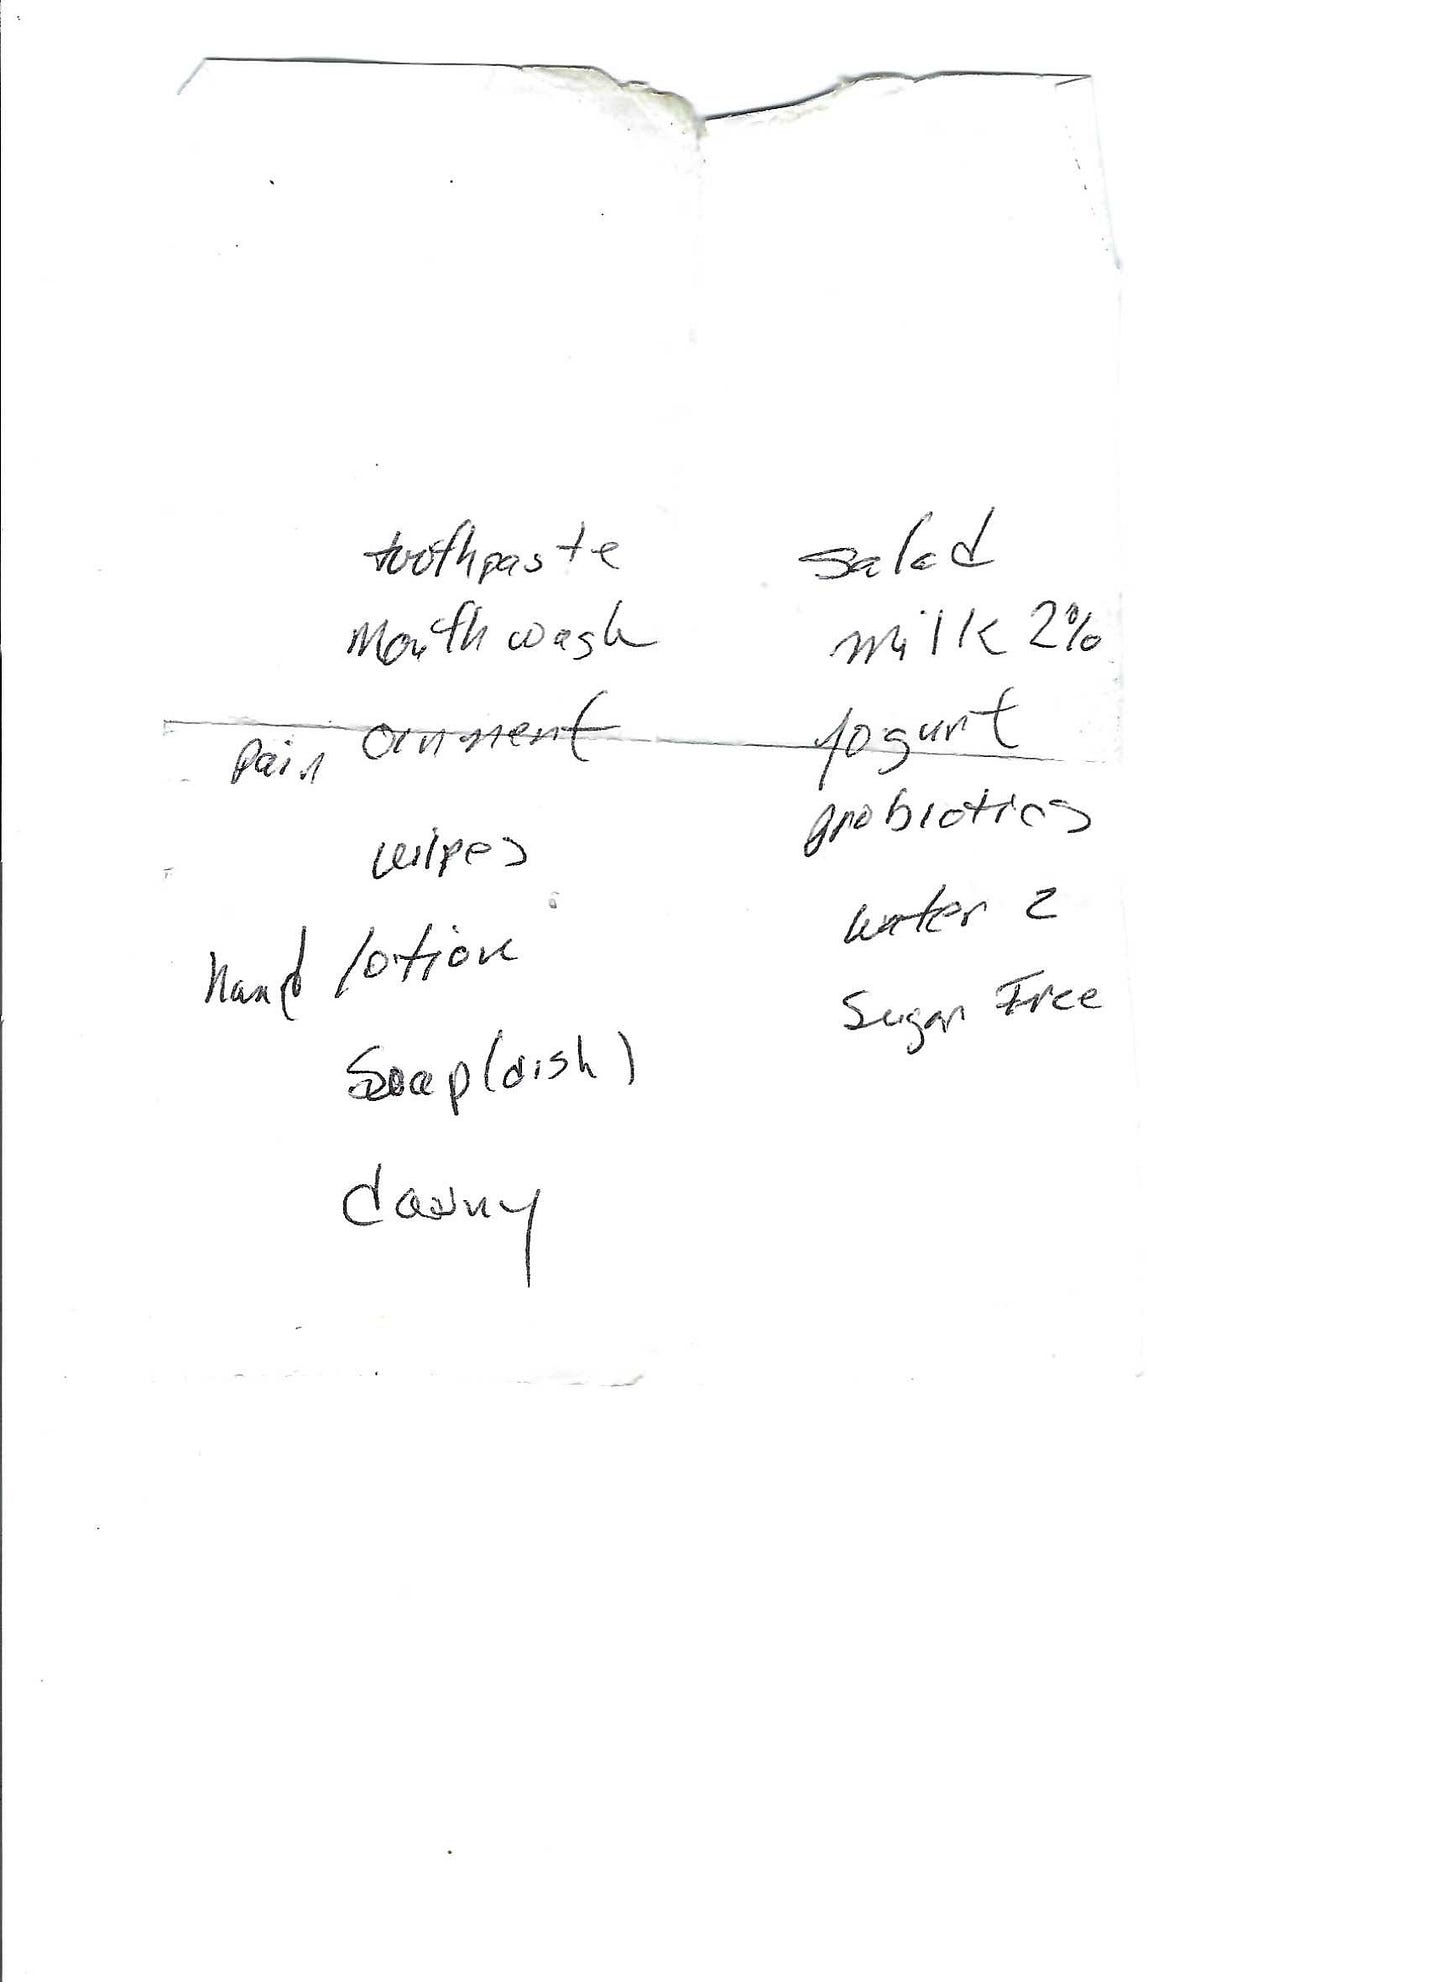 toothpaste
Mouthwash
Pain
wipes
hand lotion
Soap (dish)
salad
milk 2%
yogurt
probiotics
water 2
Sugar Free